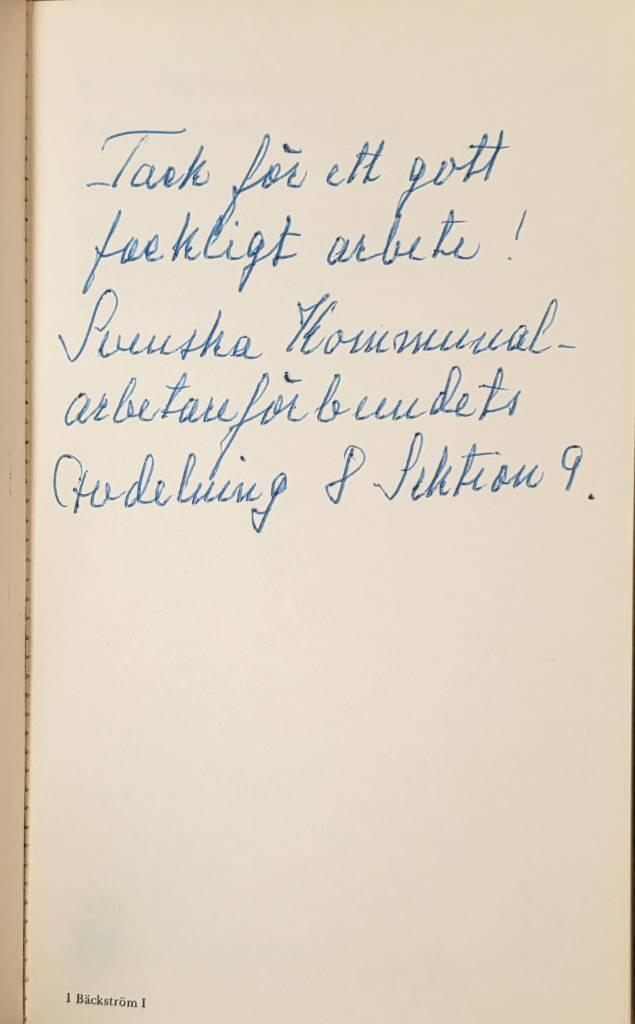 Tack för ett gott
fackligt arbete!
Svenska Kommunal-
arbetareförbundets
Avdelning 8 Sektion 9.
1 Bäckström I